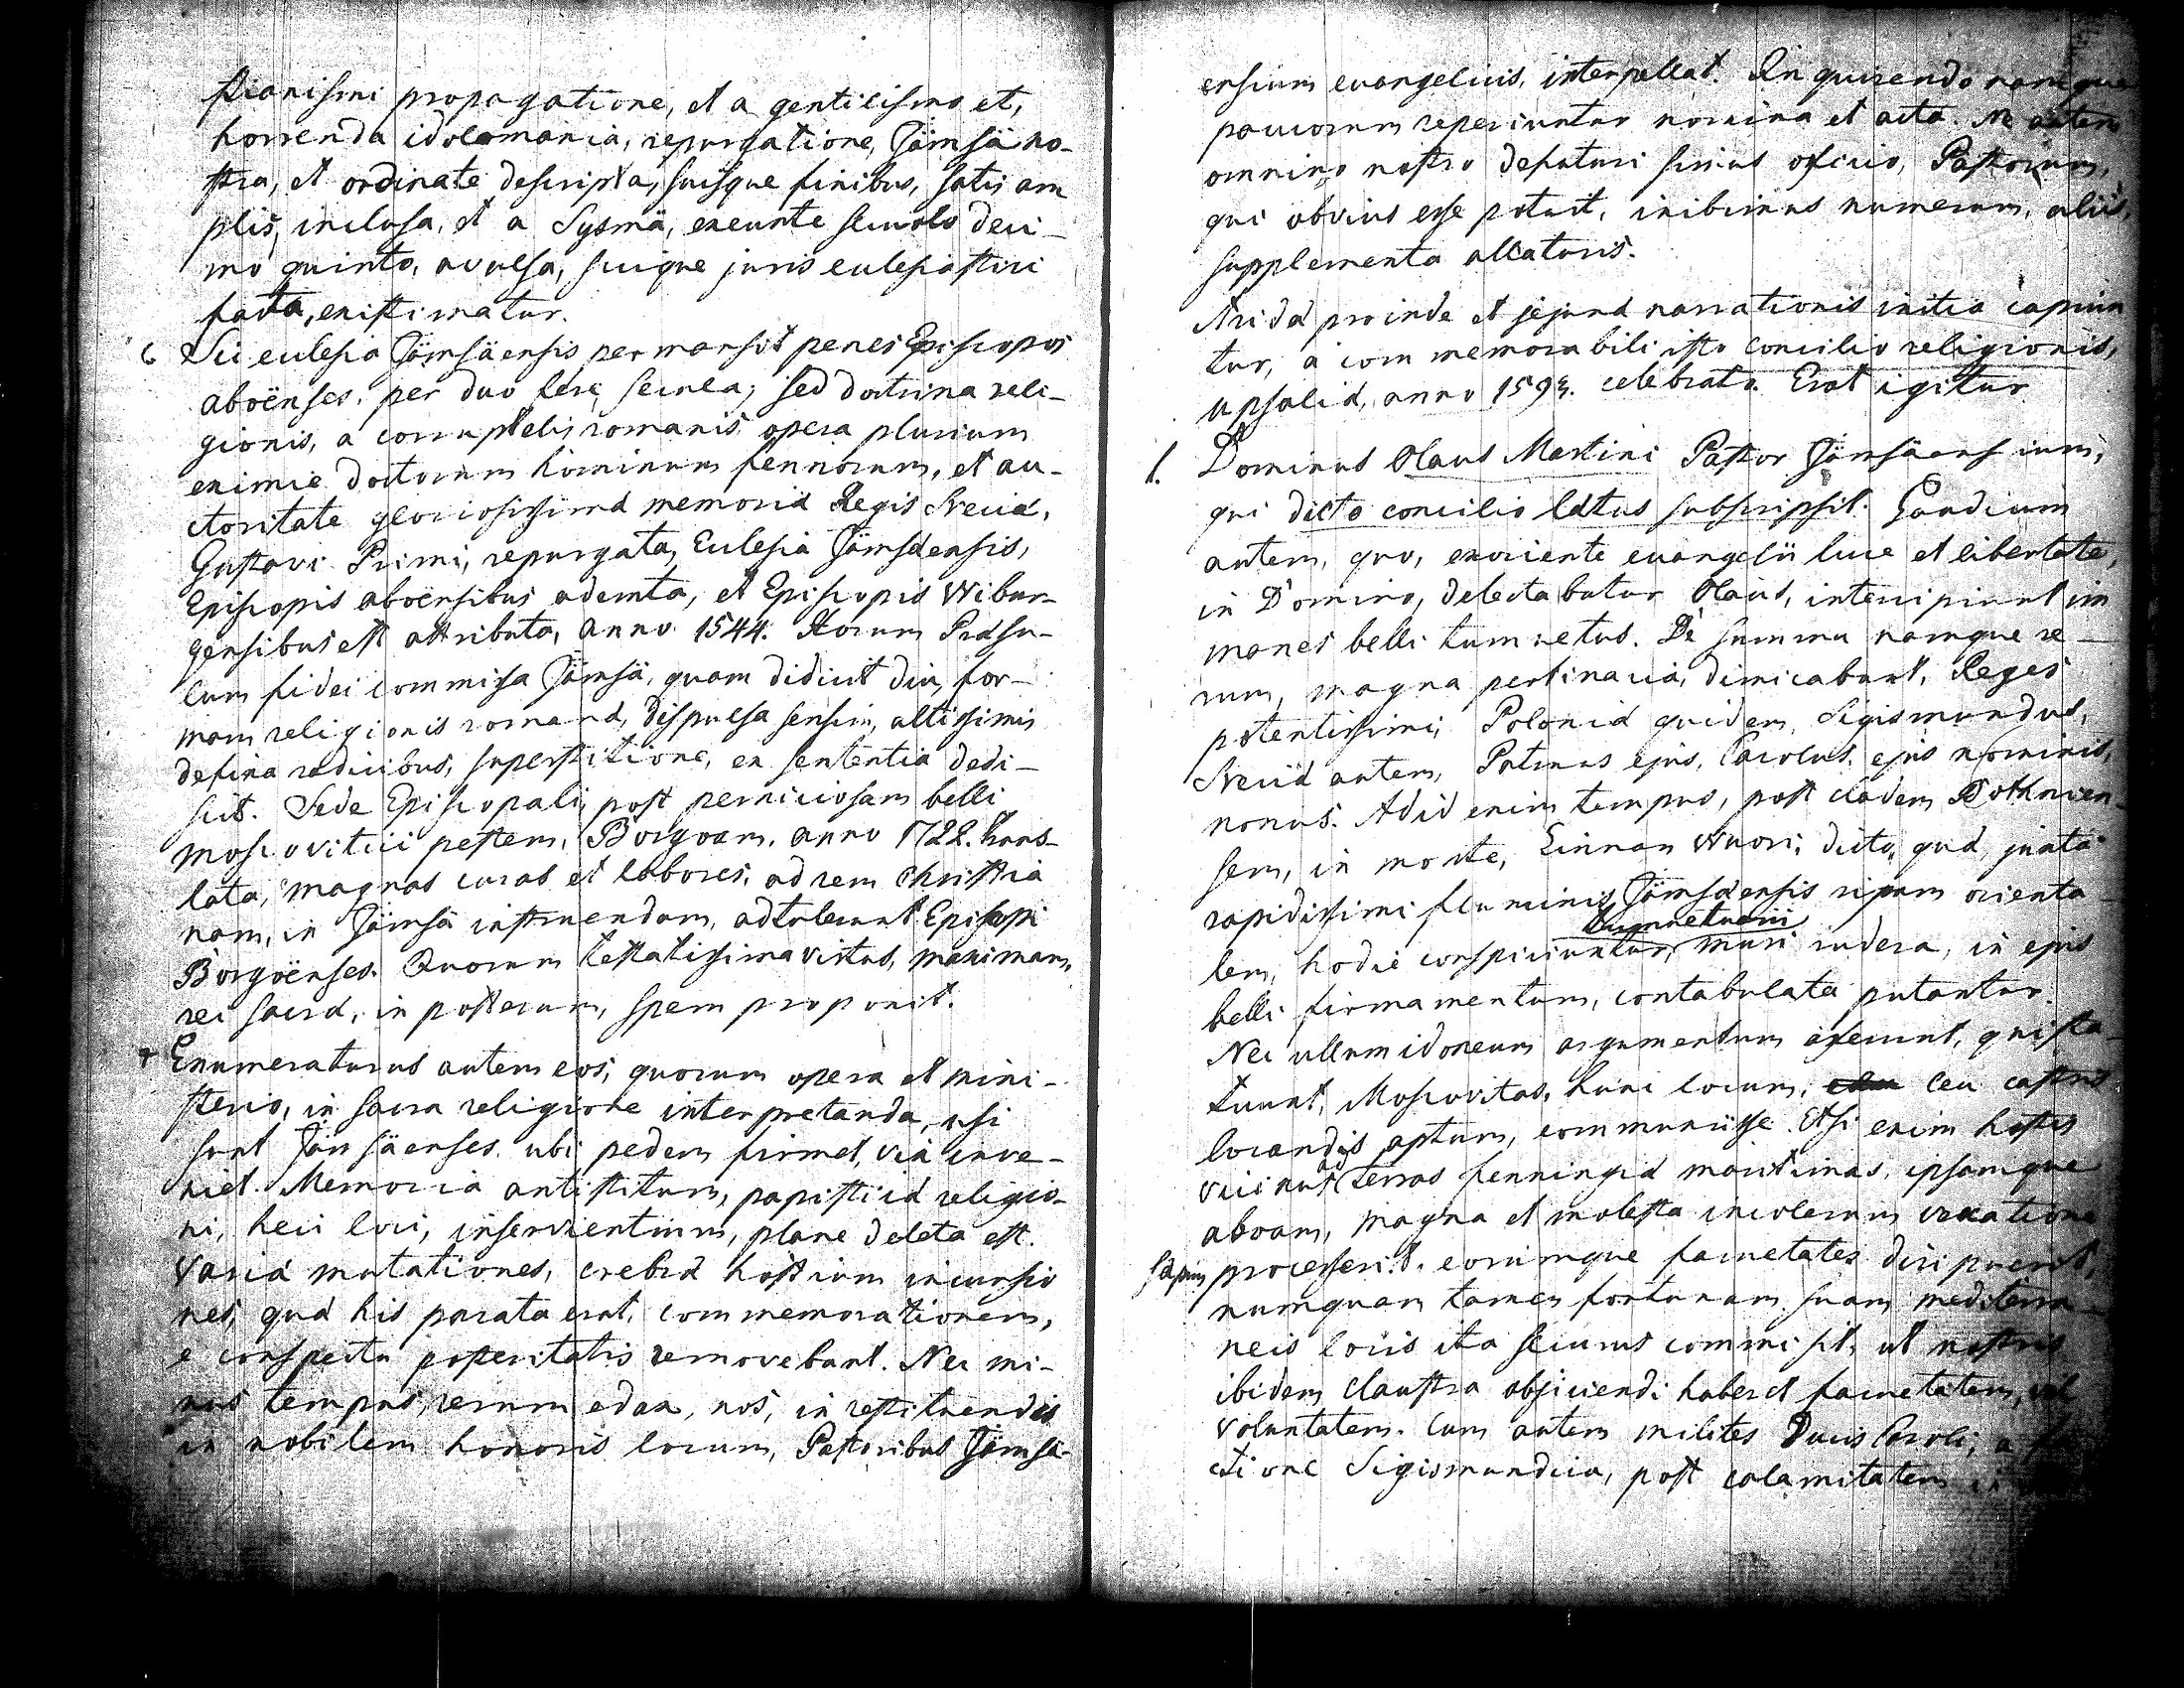 stianismi propagatione, et a gentilismo et,
horrenda idolomania, repurgatione, Jämsä no-
stra, et ordinate descripta, suisque finibus, satis am
plis, inclusa, et a Sysmä, exeunte seculo deci-
mo quinto, avulsa, suique juris eclesiastici
facta, existimatur.
6 Sic eclesia Jämsäensis permansit penes Episcopos
aboënses, per duo fere secula; sed doctrina reli-
gionis, a corruptelis romanis opera plurium
eximie doctorum hominum fennorum, et au-
ctoritate gloriosissimæ memoriæ Regis Sveciæ,
Gustavi Primi, repurgata, Eclesia Jämsäensis,
Episcopis aboënsibus ademta, et Episcopis Wibur-
gensibus est attributa, anno 1544. Horum Præsu-
lum fidei commissa Jämsä, quam didicit diu, for-
mam religionis romanæ, dispulsa sensim, altissimis
defixa radicibus, superstitione, ex sententia dedi-
scit. Sede Episcopali, post perniciosam belli
moscovitici pestem, Borgoam, anno 1722. trans-
lata, magnas curas et labores, ad rem Christia
nam, in Jämsä instruendam, adtulerunt Episcopi
Borgoënses. Quorum testatissima virtus, maximam,
rei sacræ, in posterum, spem proponit.
7 Enumeraturus autem eos, quorum opera et mini-
sterio, in sacra religione interpretanda, usi
sunt Jämsäenses, ubi pedem firmet, vix inve-
niet. Memoria antistitum, papisticæ religio-
ni, heic loci, inservientium, plane deleta est.
Variæ mutationes, crebræ hostium incursio
nes, quæ his parata erat, commemorationem,
e conspectu posteritatis removebant. Nec mi-
nus tempus, rerum edax, nos, in restituendis
in nobilem honoris locum, Pastoribus Jämsä-
ensium evangelicis, interpellat. In quirendo namque
paucorum reperiuntur nomina et acta. Ne autem
omnino nostro defuturi simus oficio, Pastorum,
qui obvius esse potuit, inibimus numerum, aliis,
supplementa allaturis.
Arida proinde et jejuna narrationis initia capiun
tur, a commemorabili isto concilio religionis,
Upsaliæ, anno 1593. celebrato. Erat igitur
1. Dominus Olaus Martini Pastor Jämsäensium,
qui dicto concilio lætus subscripsit. Gaudium
autem, quo, exoriente evangelii luce et libertate,
in Domino, delectabatur Olaus, intercipiunt im
manes belli tumultus. De summa namque re-
rum, magna pertinacia, dimicabant, Reges
potentissimi, Poloniæ quidem, Sigismundus,
Sveciæ autem, Patruus ejus, Carolus, ejus nominis,
nonus. Ad id enim tempus, post cladem Bothnien-
sem, in monte, Linnan Wuori, dicto, quæ, juxta
rapidissimi fluminis Jämsäensis ripam orienta-
lem, hodie conspiciuntur, muri rudera, in ejus
belli firmamentum, contabulata putantur.
Nec ullum idoneum argumentum aferunt, qui sta-
tuunt, Moscovitas, hunc locum, ceu castris
locandis aptum, communiisse. Etsi enim hostis
vicinus ad terras fenningiæ maritimas, ipsamque
aboam, magna et molesta incolarum vexatione
sæpius processerit, eorumque facultates diripuerit,
numquam tamen fortunam suam mediterra-
neis locis ita securus commisit, ut nostris
ibidem claustra objiciendi haberet facultatem, vel
voluntatem. Cum autem milites Ducis Caroli, a
ctione Sigismundica, post calamitatem